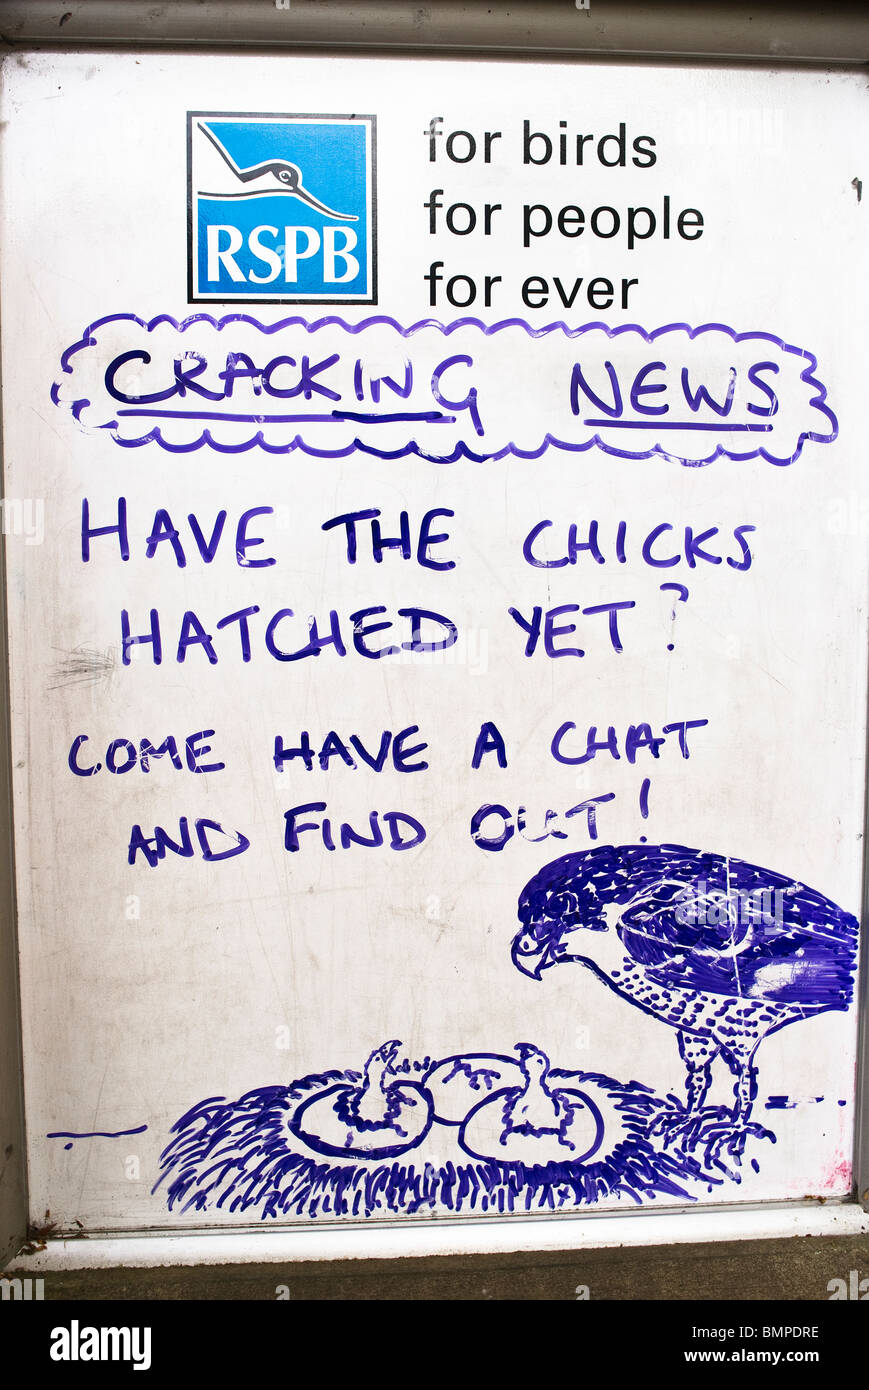 for birds
for people
for ever
RSPB
CRACKING NEWS
HAVE THE CHICKS
HATCHED YET?
COME HAVE A CHAT
AND FIND OUT!
alamy
Image ID: BMPDRE
www.alamy.com